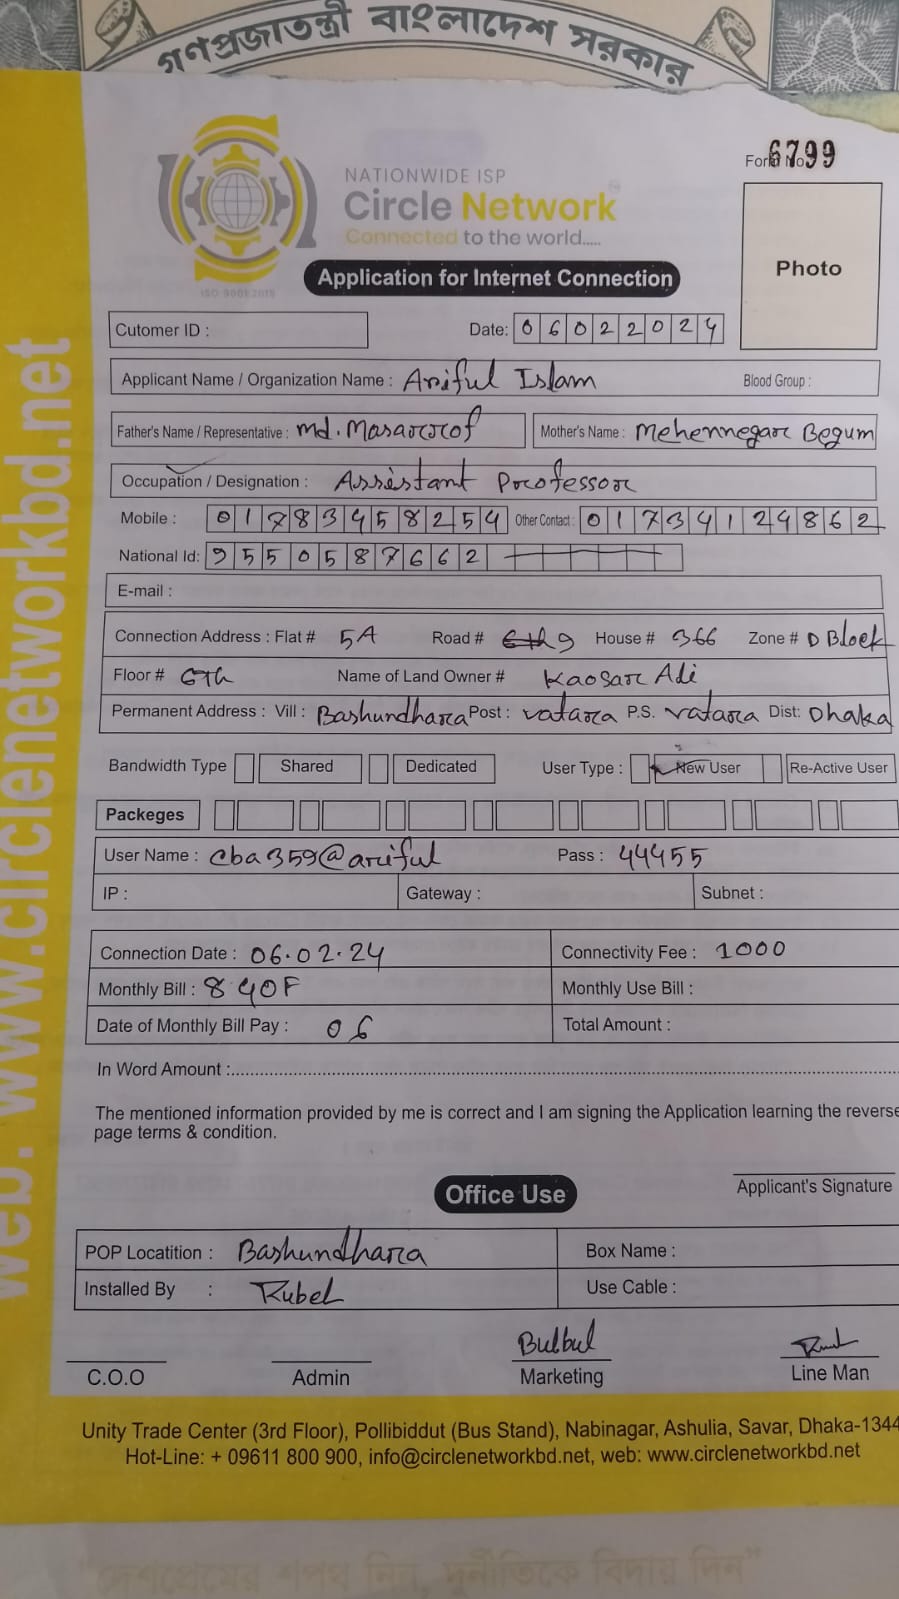 গণপ্রজাতন্ত্রী বাংলাদেশ সরকার
Form No 6799
NATIONWIDE ISP
Circle Network
Connected to the world.....
ISO 9001:2015
Photo
Application for Internet Connection
Cutomer ID :
Date: 06022024
Applicant Name / Organization Name : Ariful Islam Blood Group :
Father's Name / Representative : md. Masarrof Mother's Name : Mehennegar Begum
Occupation / Designation : Assistant Professor
Mobile : 01783458254 Other Contact : 01734124862
National Id: 9550587662
E-mail :
Connection Address : Flat # 5A Road # 9 House # 366 Zone # D Block
Floor # 6th Name of Land Owner # Kaosar Ali
Permanent Address : Vill : Bashundhara Post : vatara P.S. vatara Dist: Dhaka
Bandwidth Type Shared Dedicated User Type : New User Re-Active User
Packeges
User Name : cba359@ariful Pass : 44455
IP : Gateway : Subnet :
Connection Date : 06.02.24 Connectivity Fee : 1000
Monthly Bill : 840F Monthly Use Bill :
Date of Monthly Bill Pay : 06 Total Amount :
In Word Amount :
The mentioned information provided by me is correct and I am signing the Application learning the reverse
page terms & condition.
Applicant's Signature
Office Use
POP Locatition : Bashundhara Box Name :
Installed By : Rubel Use Cable :
Bulbul
C.O.O Admin Marketing Line Man
Unity Trade Center (3rd Floor), Pollibiddut (Bus Stand), Nabinagar, Ashulia, Savar, Dhaka-1344
Hot-Line: + 09611 800 900, info@circlenetworkbd.net, web: www.circlenetworkbd.net
web: www.circlenetworkbd.net
"দেশপ্রেমের শপথ নিন, দুর্নীতিকে বিদায় দিন"